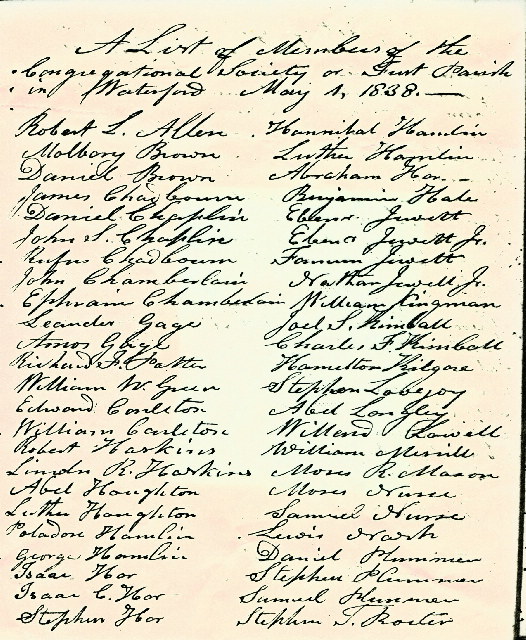 A List of Members of the
Congregational Society or First Parish
in Waterford May 1, 1838.—
Robert L. Allen
Malbory Brown
Daniel Brown
James Chadbourn
Daniel Chaplin
John S. Chaplin
Rufus Chadbourn
John Chamberlain
Ephraim Chamberlain
Leander Gage
Amos Gage
Richard F. Patter
William W. Green
Edward Carleton
William Carleton
Robert Haskins
Lincoln R. Haskins
Abel Houghton
Luther Houghton
Hamlin
George Hamlin
Isaac Hor
Isaac C. Hor
Stephen Hor
Hannibal Hamlin
Luther Hamlin
Abraham Hor
Benjamin Hale
Ebenr Jewett
Ebenr Jewett Jr.
Farnum Jewett
Nathan Jewett Jr.
William Kingman
Joel S. Kimball
Charles F. Kimball
Hamelton Kilgore
Stephen Lovejoy
Abel Langley
Willard Lowell
William Merrill
Moses R. Mason
Moses Nurse
Samuel Nurse
Lewis
Daniel Plummer
Stephen Plummer
Samuel Plummer
Stephen T.